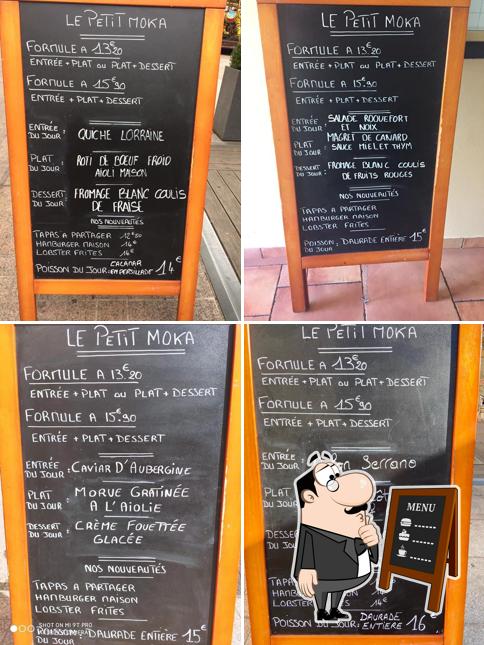 LE PETIT MOKA
FORMULE A 13€20
ENTRÉE + PLAT ou PLAT + DESSERT
FORMULE A 15€90
ENTRÉE + PLAT + DESSERT
ENTRÉE DU JOUR : QUICHE LORRAINE
PLAT DU JOUR : ROTI DE BŒUF FROID
AIOLI MAISON
DESSERT DU JOUR : FROMAGE BLANC COULIS
DE FRAISE
NOS NOUVEAUTÉS
TAPAS A PARTAGER 12€50
HAMBURGER MAISON 14€
LOBSTER FRITES 14€
POISSON DU JOUR : CALAMAR EN PERSILLADE 14€
LE PETIT MOKA
FORMULE A 13€20
ENTRÉE + PLAT ou PLAT + DESSERT
FORMULE A 15€90
ENTRÉE + PLAT + DESSERT
ENTRÉE DU JOUR : SALADE ROQUEFORT
ET NOIX
PLAT DU JOUR : MAGRET DE CANARD
SAUCE MIEL ET THYM
DESSERT DU JOUR : FROMAGE BLANC COULIS
DE FRUITS ROUGES
NOS NOUVEAUTÉS
TAPAS A PARTAGER
HAMBURGER MAISON
LOBSTER FRITES
POISSON DU JOUR : DAURADE ENTIÈRE 15€
LE PETIT MOKA
FORMULE A 13€20
ENTRÉE + PLAT ou PLAT + DESSERT
FORMULE A 15€90
ENTRÉE + PLAT + DESSERT
ENTRÉE DU JOUR : CAVIAR D'AUBERGINE
PLAT DU JOUR : MORUE GRATINÉE
A L'AIOLIE
DESSERT DU JOUR : CRÈME FOUETTÉE
GLACÉE
NOS NOUVEAUTÉS
TAPAS A PARTAGER
HAMBURGER MAISON
LOBSTER FRITES
SHOT ON MI 9T PRO
POISSON DAURADE ENTIÈRE 15€
LE PETIT MOKA
FORMULE A 13€20
ENTRÉE + PLAT ou PLAT + DESSERT
FORMULE A 15€90
ENTRÉE + PLAT + DESSERT
ENTRÉE DU JOUR : Serrano
PLAT
DU JOUR
MENU
14€
14€
POISSON DU JOUR : DAURADE ENTIÈRE 16€